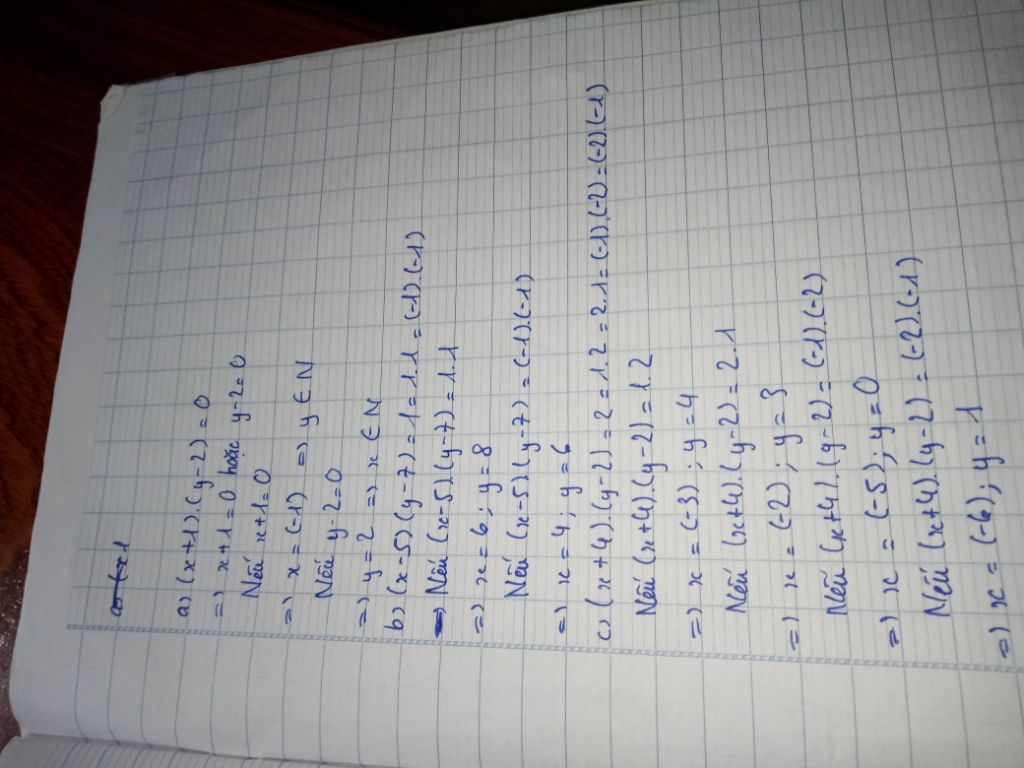 a) (x+1).(y-2)=0
=) x+1=0 hoặc y-2=0
Nếu x+1=0
=) x=(-1) =) y∈N
Nếu y-2=0
=) y=2 =) x∈N
b) (x-5).(y-7)=1=1.1=(-1).(-1)
Nếu (x-5).(y-7)=1.1
=) x=6; y=8
Nếu (x-5).(y-7)=(-1).(-1)
=) x=4; y=6
c) (x+4).(y-2)=2=1.2=2.1=(-1).(-2)=(-2).(-1)
Nếu (x+4).(y-2)=1.2
=) x=(-3); y=4
Nếu (x+4).(y-2)=2.1
=) x=(-2); y=3
Nếu (x+4).(y-2)=(-1).(-2)
=) x=(-5); y=0
Nếu (x+4).(y-2)=(-2).(-1)
=) x=(-6); y=1